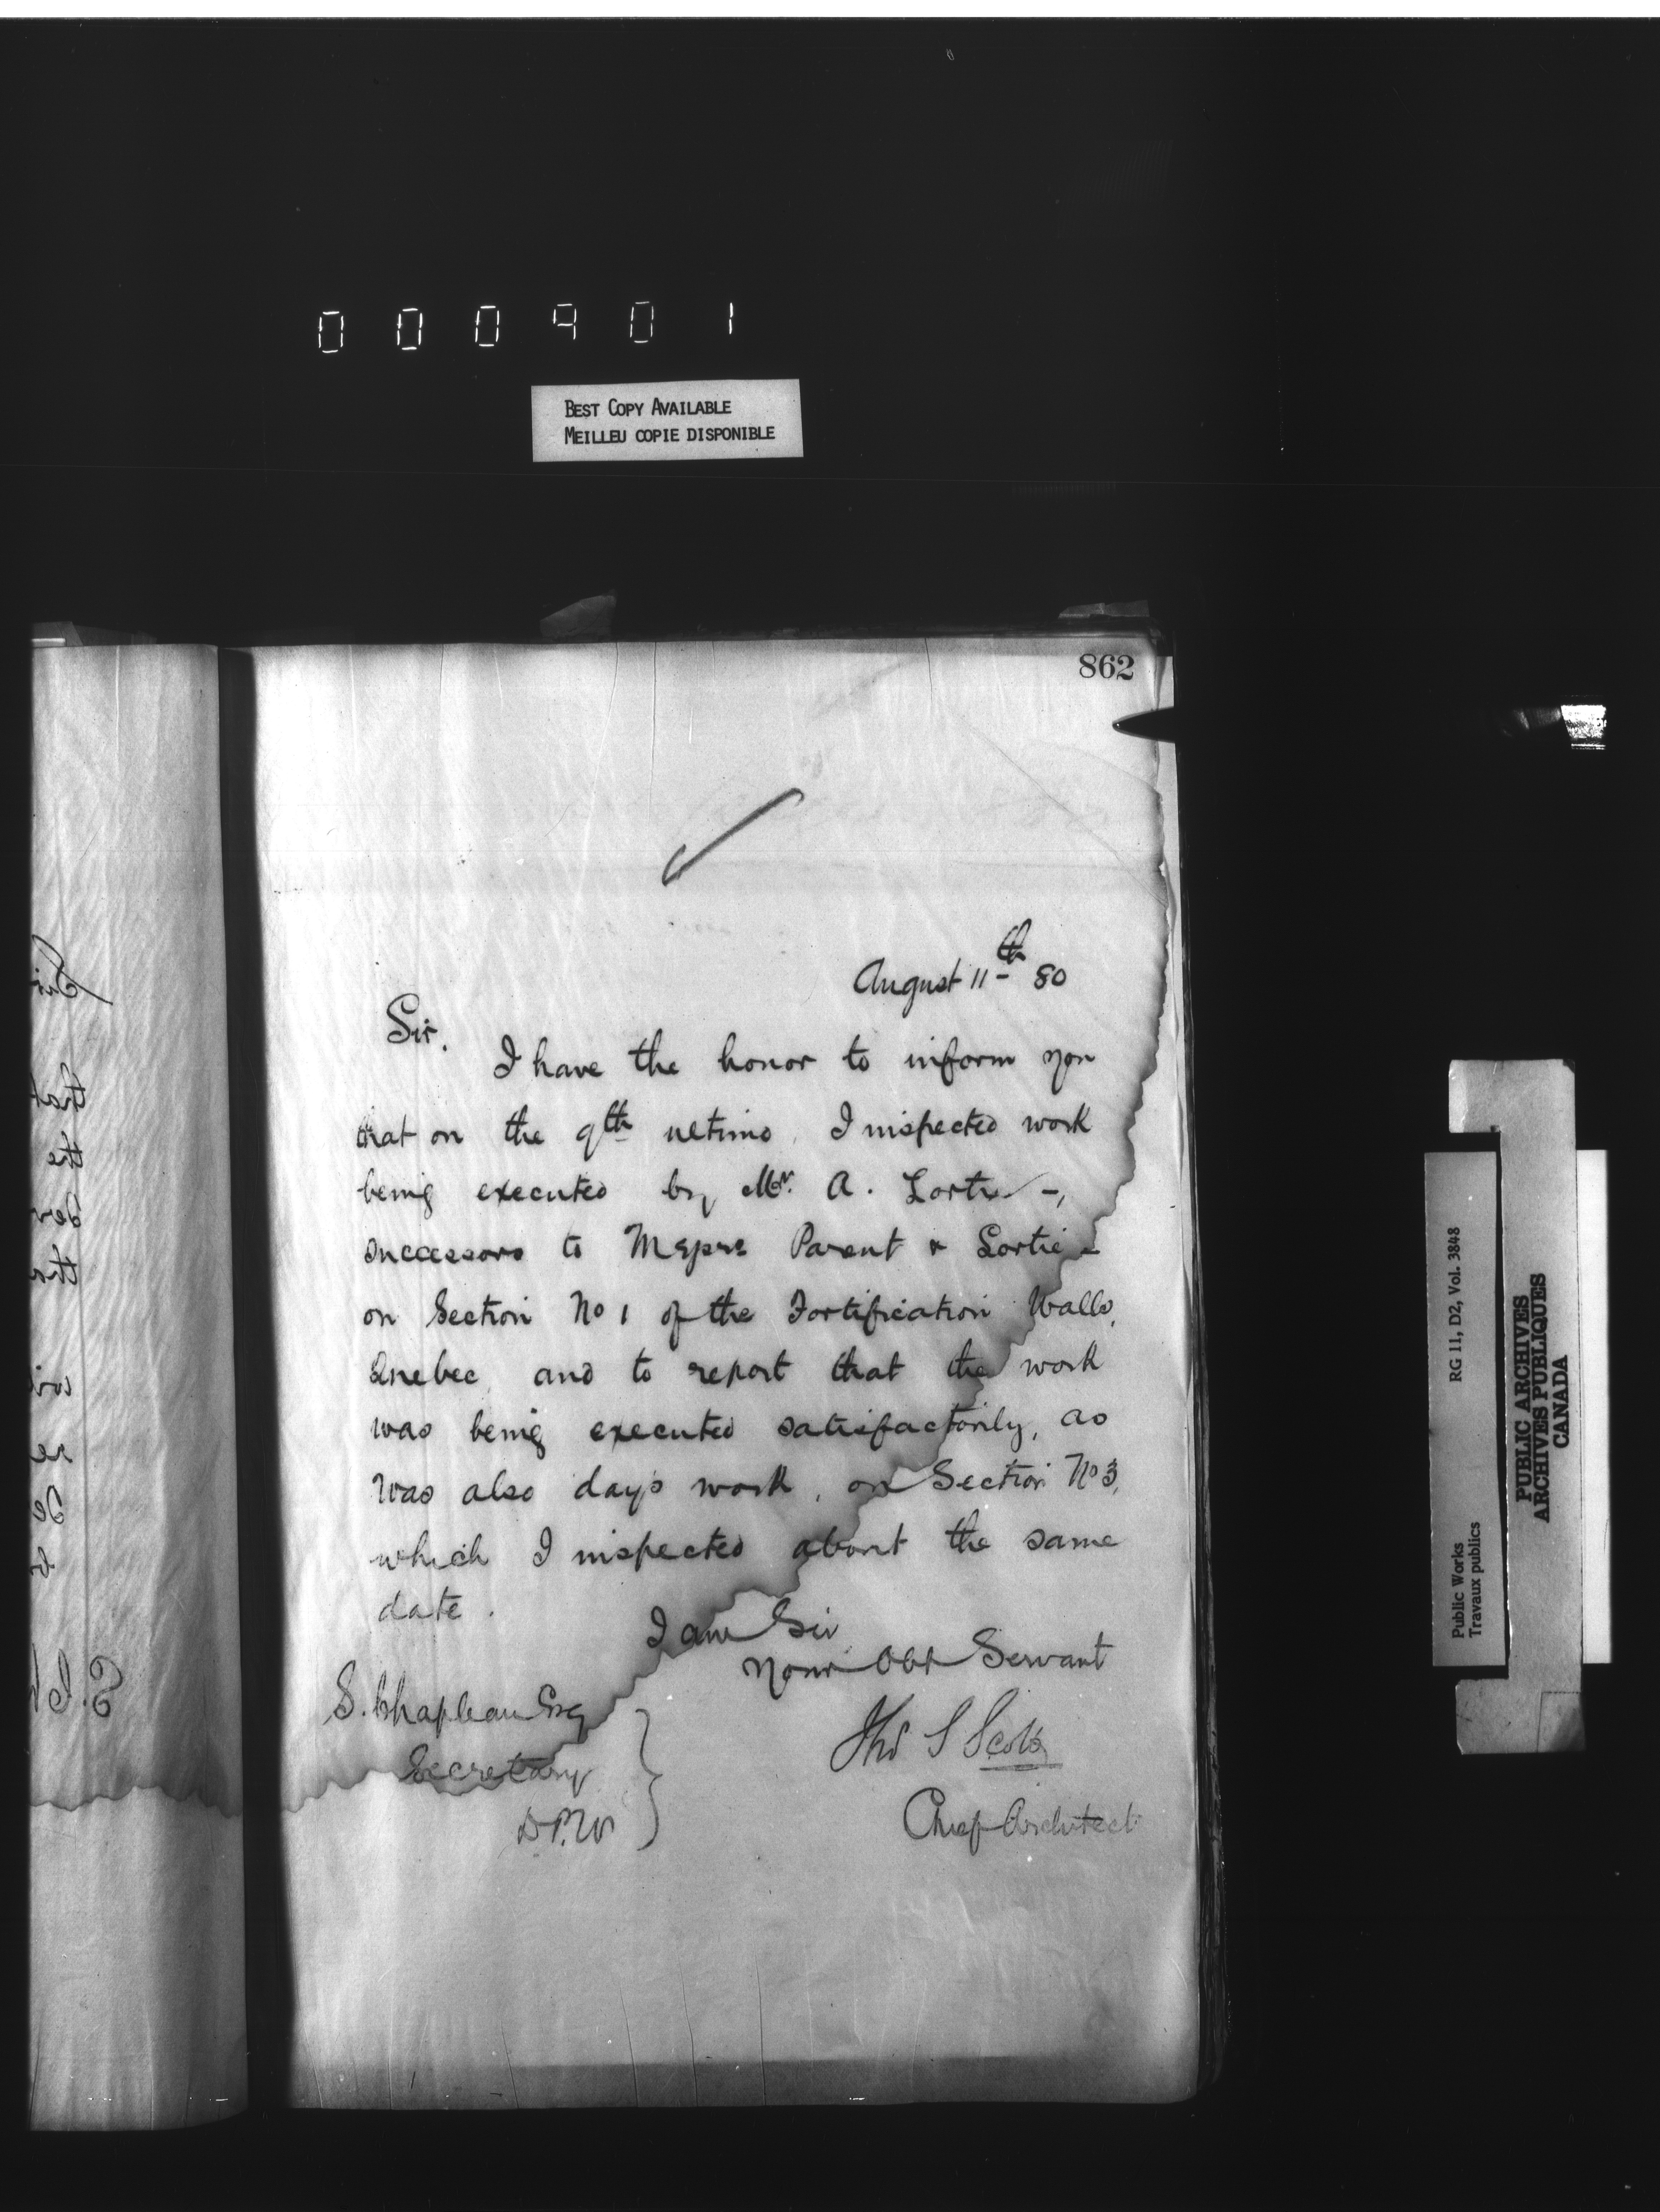 000901
BEST COPY AVAILABLE
MEILLEU COPIE DISPONIBLE
862
August 11th 80
Sir.
I have the honor to inform you
that on the 9th ultimo, I inspected work
being executed by Mr. A. Lortie -,
successors to Messrs Parent & Lortie -
on Section No 1 of the Fortification Walls,
Quebec, and to report that the work
was being executed satisfactorily, as
was also day's work, on Section No 3,
which I inspected about the same
date.
I am Sir
Your Obt Servant
S. Chapleau Esq
Secretary
D.P.W
Thos S Scott
Chief Architect
Public Works
Travaux publics
RG 11, D2, Vol. 3848
PUBLIC ARCHIVES
ARCHIVES PUBLIQUES
CANADA